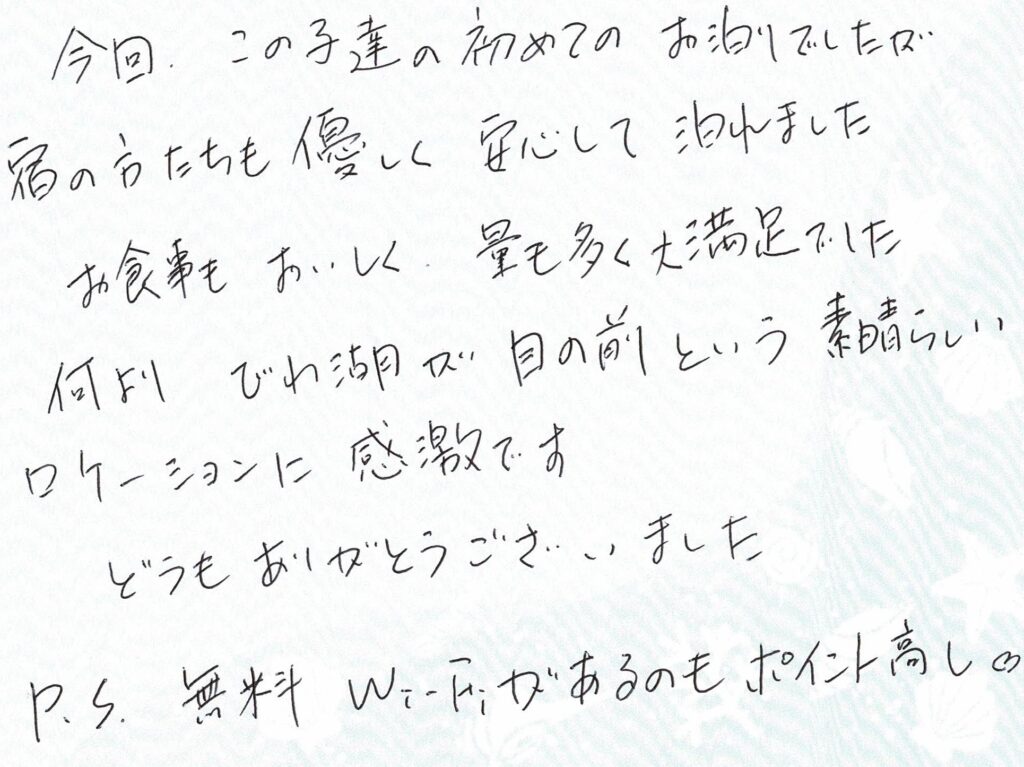 今回. この子達の初めてのお泊りでしたが
宿の方たちも優しく安心して泊れました
お食事もおいしく. 量も多く大満足でした
何よりびわ湖が目の前という素晴らしい
ロケーションに感激です
どうもありがとうございました
P.S. 無料Wi-Fiがあるのもポイント高し♡